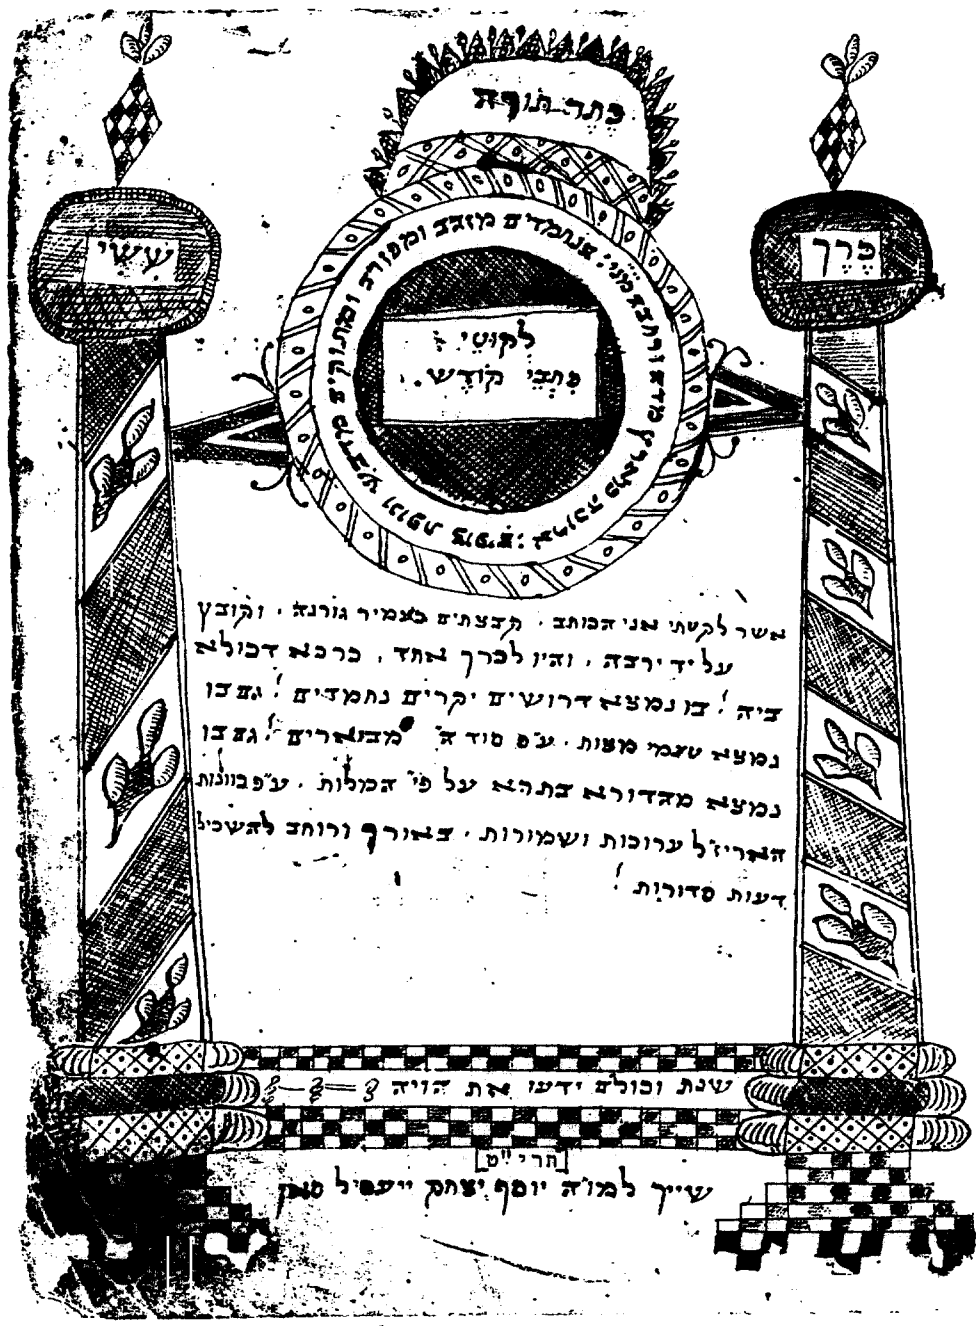 כתר תורה
כרך
ששי
ארוכה מארץ מדה ורחבה מני: הנחמדים מזהב ומפז רב ומתוקים מדבש ונופת צופים:
לקוטי
כתבי קודש
אשר לקטתי אני הכותב. קבצתים כעמיר גורנה. וקובץ
על יד ירבה. והיו לכרך אחד. כרכא דכולא
ביה! בו נמצא דרושים יקרים נחמדים! גם בו
נמצא טעמי מצות. ע"פ סוד ה' מבוארים! גם בו
נמצא מהדורא בתרא על פי' המלות. ע"פ כוונות
האריז"ל ערוכות ושמורות. באורך ורוחב להשכיל
דעות סדורות!
שנת וכולם ידעו את הויה
תרי"ט
שייך למו"ה יוסף יצחק